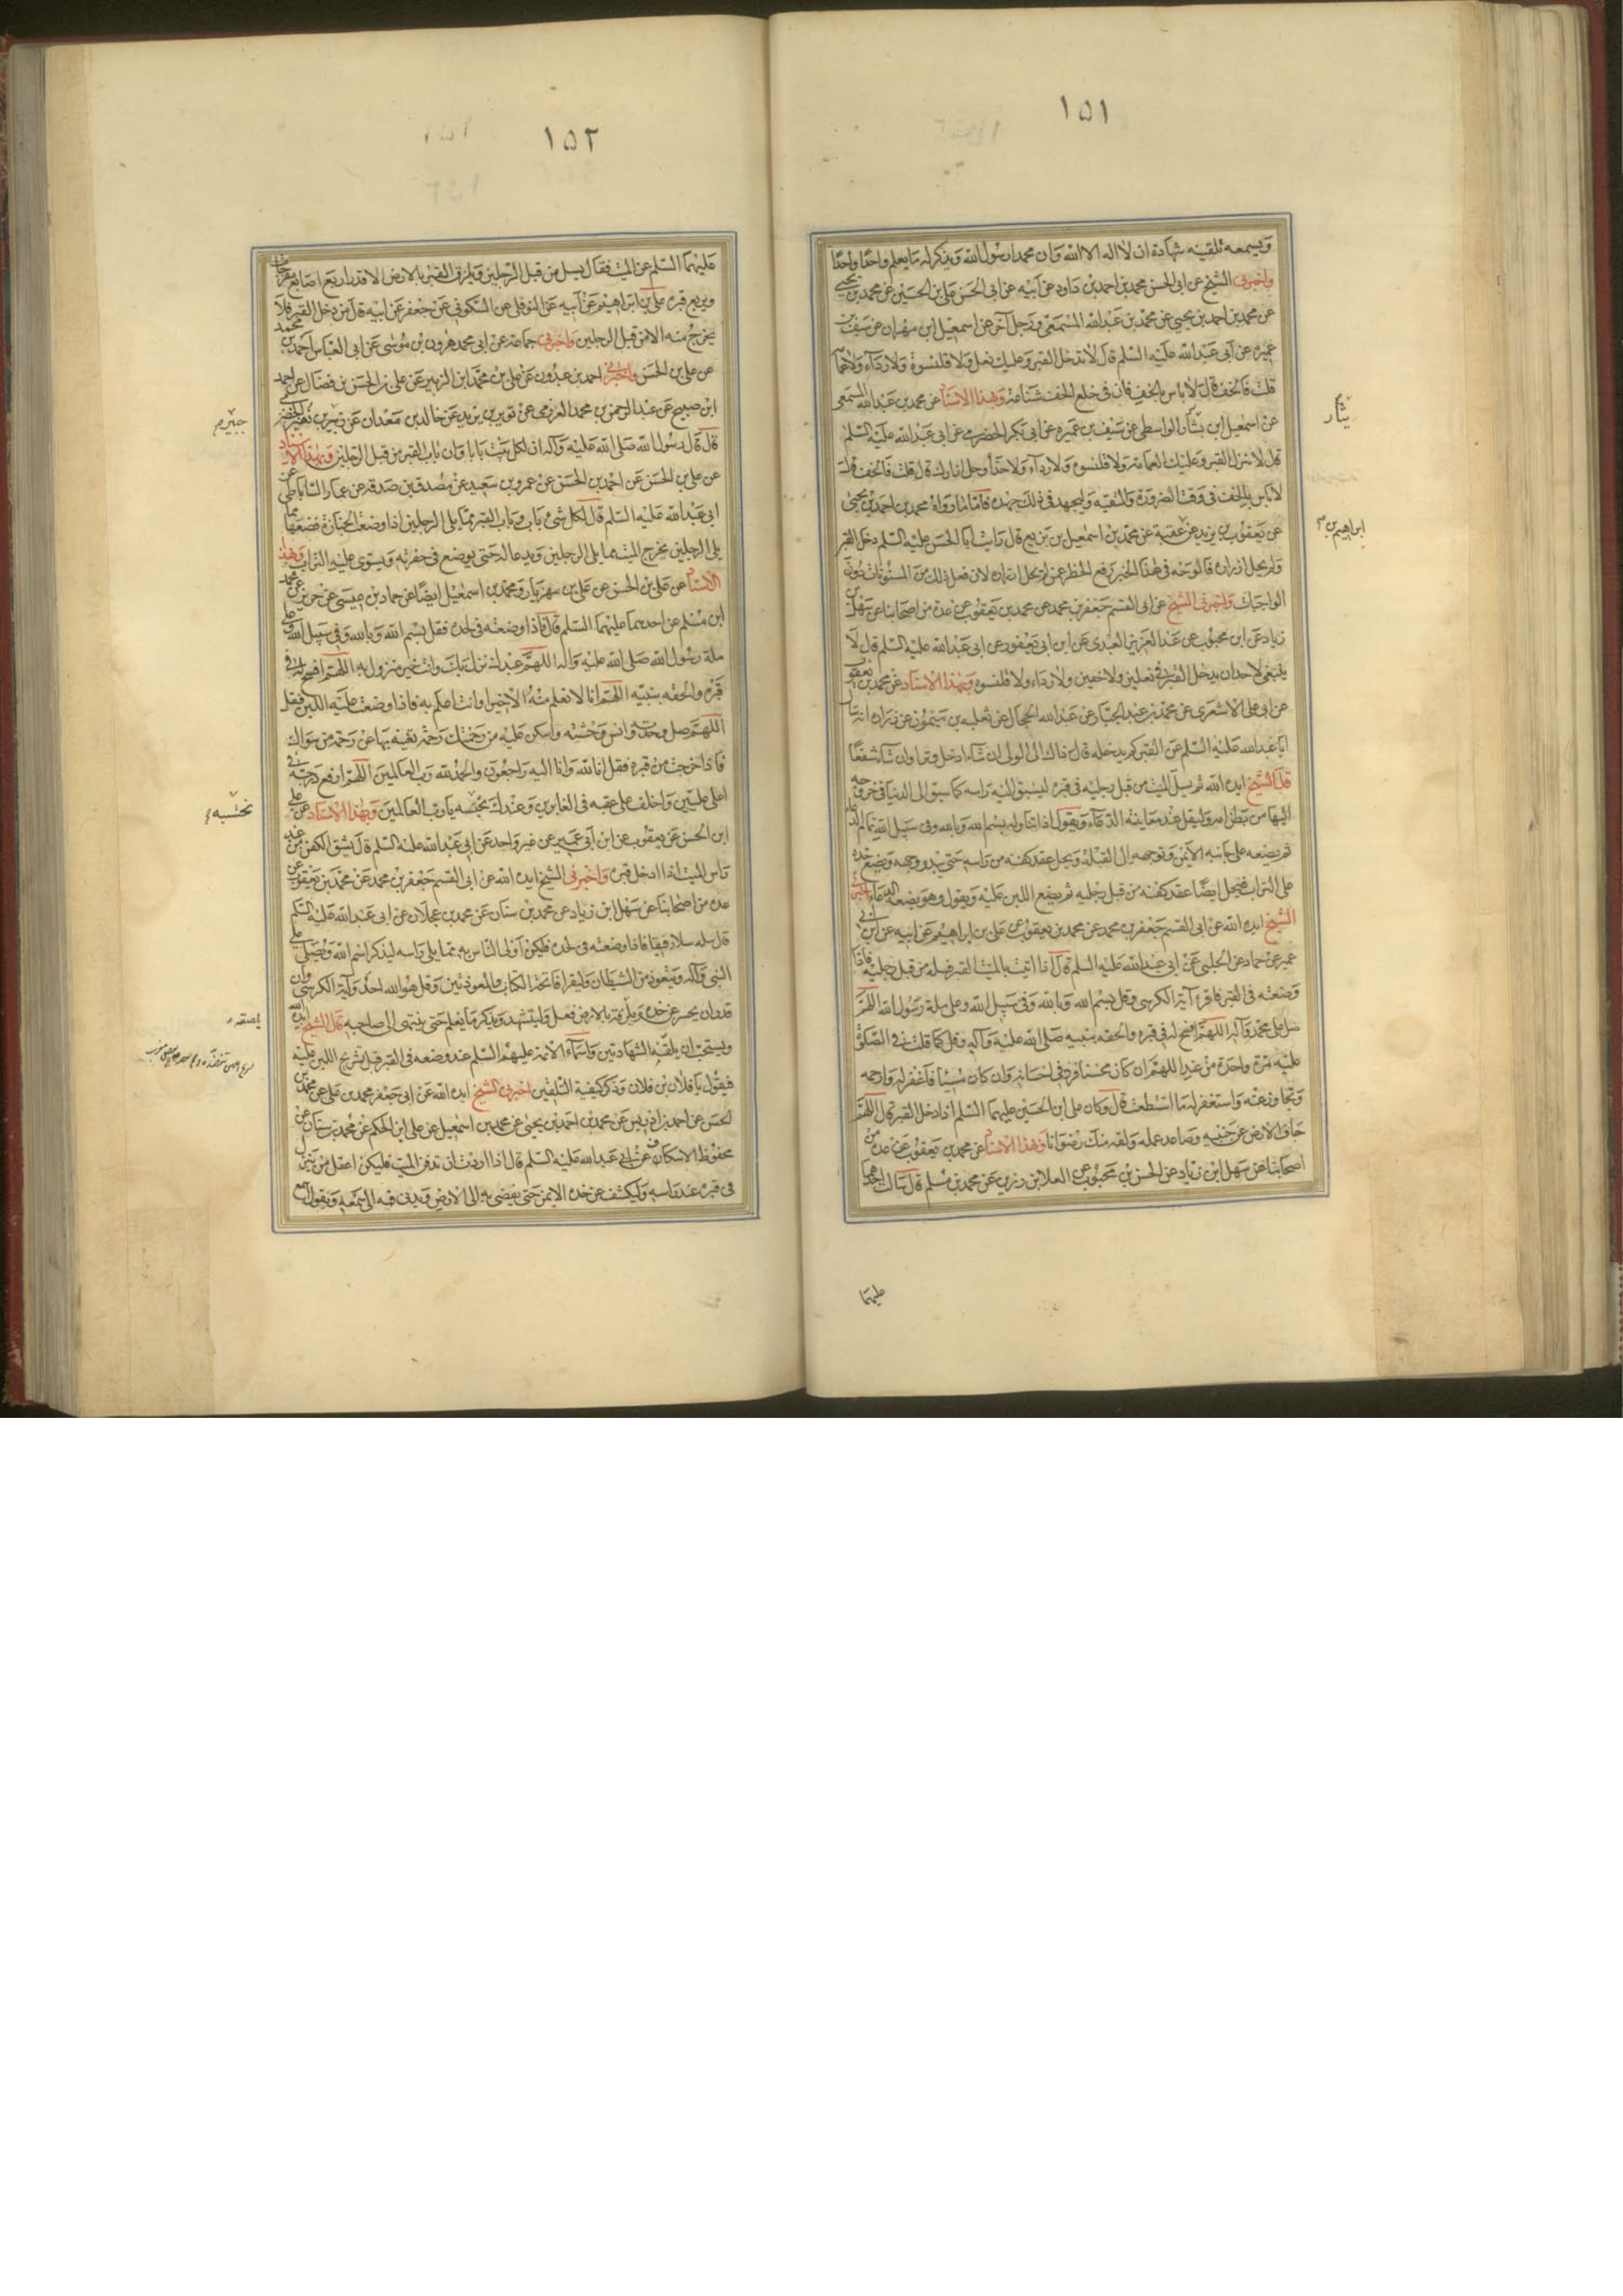 ١٥١
ويسمعه تلقينه شهادة ان لا اله الا الله وان محمدا رسول الله ويذكر له ما يعلم واحدا واحدا
واخبرني الشيخ عن ابى الحسن محمد بن احمد بن داود عن ابيه عن ابى الحسن على بن الحسين عن محمد بن يحيى
عن محمد بن احمد بن يحيى عن محمد بن عبد الله المسمعى ورجل آخر عن اسمعيل ابن مهران عن سيف بن
عميرة عن ابى عبد الله عليه السلم قال لا تدخل القبر وعليك نعل ولا قلنسوة ولا رداء ولا عمامة
قلت فالخف قال لا باس بالخف فان فى خلع الخف شناعة وبهذا الاسناد عن محمد بن عبد الله المسمعى
عن اسمعيل ابن بشار الواسطى عن سيف بن عميرة عن ابى بكر الحضرمى عن ابى عبد الله عليه السلم
قال لا تنزل القبر وعليك العمامة ولا قلنسوة ولا رداء ولا حذاء وحل ازرارك قال قلت فالخف قال
لا باس بالخف فى وقت الضرورة والتقية وليجهد فى ذلك جهده فاما ما رواه محمد بن احمد بن يحيى
عن يعقوب بن يزيد عن عقبة عن محمد بن اسمعيل بن بزيع قال رايت ابا الحسن عليه السلم دخل القبر
ولم يحل ازراره فالوجه فى هذا الخبر رفع الحظر عمن لم يحل ازراره لان فعل ذلك من المسنونات دون
الواجبات واخبرنى الشيخ عن ابى القسم جعفر بن محمد عن محمد بن يعقوب عن عدة من اصحابنا عن سهل بن
زياد عن ابن محبوب عن عبد العزيز العبدى عن ابن ابى يعفور عن ابى عبد الله عليه السلم قال لا
ينبغى لاحد ان يدخل القبر فى نعلين ولا خفين ولا رداء ولا قلنسوة وبهذا الاسناد عن محمد بن يعقوب
عن ابى على الاشعرى عن محمد بن عبد الجبار عن عبد الله الحجال عن ثعلبه بن ميمون عن زرارة انه سال
ابا عبد الله عليه السلم عن القبر كم يدخله قال ذاك الى الولى ان شاء ادخل وترا وان شاء شفعا
قال الشيخ ايده الله ثم يسل الميت من قبل رجليه فى قبره ليسبق اليه راسه كما سبق الى الدنيا فى خروجه
اليها من بطن امه وليقل عند معاينته الدعاء ويقول اذا تناوله بسم الله وبالله وفى سبيل الله تمام الدعا
ثم يضعه على جانبه الايمن وتوجهه الى القبلة ويحل عقد كفنه من راسه حتى يبدو وجهه ويضع خده
على التراب فيحل ايضا عقد كفنه من قبل رجليه ثم يضع اللبن عليه ويقول وهو يضعه الدعاء اخبرنى
الشيخ ايده الله عن ابى القسم جعفر بن محمد عن محمد بن يعقوب عن على بن ابراهيم عن ابيه عن ابن ابى
عمير عن حماد عن الحلبى عن ابى عبد الله عليه السلم قال اذا اتيت بالميت القبر فسله من قبل رجليه فاذا
وضعته فى القبر فاقرء آية الكرسى وقل بسم الله وبالله وفى سبيل الله وعلى ملة رسول الله اللهم
صل على محمد وآله اللهم افسح له فى قبره والحقه بنبيه صلى الله عليه وآله وقل كما قلت فى الصلوة
عليه مرة واحدة من عند اللهم ان كان محسنا فزد فى احسانه وان كان مسيئا فاغفر له وارحمه
وتجاوز عنه واستغفر له ما استطعت قال وكان على ابن الحسين عليهما السلم اذا دخل القبر قال اللهم
جاف الارض عن جنبيه وصاعد عمله ولقه منك رضوانا وبهذا الاسناد عن محمد بن يعقوب عن عدة من
اصحابنا عن سهل ابن زياد عن الحسن بن محبوب عن العلا بن رزين عن محمد بن مسلم قال سالت احدهما
عليهما
بشار
ابراهيم بن
١٥٢
عليهما السلم عن الميت فقال يسل من قبل الرجلين ويلزق القبر بالارض الا قدر اربع اصابع مفرجات
ويربع قبره على بن ابراهيم عن ابيه عن النوفلى عن السكونى عن جعفر عن ابيه قال من دخل القبر فلا
يخرج منه الا من قبل الرجلين واخبرنى جماعة عن ابى محمد هرون بن موسى عن ابى العباس احمد بن محمد
عن على بن الحسن واخبرنى احمد بن عبدون عن على بن محمد ابن الزبير عن على بن الحسن بن فضال عن احمد
ابن صبيح عن عبد الرحمن بن محمد العزرمى عن ثوير بن يزيد عن خالد بن معدان عن جبير بن نفير الحضرمى
قال قال رسول الله صلى الله عليه وآله ان لكل بيت بابا وان باب القبر من قبل الرجلين وبهذا الاسناد
عن على بن الحسن عن احمد بن الحسن عن عمرو بن سعيد عن مصدق بن صدقة عن عمار الساباطى عن
ابى عبد الله عليه السلم قال لكل شىء باب وباب القبر مما يلى الرجلين اذا وضعت الجنازة فضعها مما
يلى الرجلين يخرج الميت مما يلى الرجلين ويدعا له حتى يوضع فى حفرته ويسوى عليه التراب وبهذا
الاسناد عن على بن الحسن عن على بن مهزيار ومحمد بن اسمعيل ايضا عن حماد بن عيسى عن حريز عن محمد
ابن مسلم عن احدهما عليهما السلم قال فاذا وضعته فى لحده فقل بسم الله وبالله وفى سبيل الله وعلى
ملة رسول الله صلى الله عليه وآله اللهم عبدك نزل بك وانت خير منزول به اللهم افسح له فى
قبره والحقه بنبيه اللهم انا لا نعلم منه الا خيرا وانت اعلم به فاذا وضعت عليه اللبن فقل
اللهم صل وحدته وانس وحشته واسكن عليه من رحمتك رحمة تغنيه بها عن رحمة من سواك
فاذا خرجت من قبره فقل انا لله وانا اليه راجعون والحمد لله رب العالمين اللهم ارفع درجته فى
اعلى عليين واخلف على عقبه فى الغابرين وعندك نحتسبه يا رب العالمين وبهذا الاسناد عن على
ابن الحسن عن يعقوب عن ابن ابى عمير عن غير واحد عن ابى عبد الله عليه السلم قال يشق الكفن من عند
راس الميت اذا ادخل قبره واخبرنى الشيخ ايده الله عن ابى القسم جعفر بن محمد عن محمد بن يعقوب عن
عدة من اصحابنا عن سهل ابن زياد عن محمد بن سنان عن محمد بن عجلان عن ابى عبد الله عليه السلم
قال سله سلا رفيقا فاذا وضعته فى لحده فليكن اولى الناس به مما يلى راسه ليذكر اسم الله ويصلى على
النبى وآله ويتعوذ من الشيطان وليقرا فاتحة الكتاب والمعوذتين وقل هو الله احد وآية الكرسى وان
قدر ان يحسر عن خده ويلزقه بالارض فعل وليتشهد ويذكر ما يعلم حتى ينتهى الى صاحبه قال الشيخ ايده الله
ويستحب ان يلقنه الشهادتين واسماء الائمة عليهم السلم عند وضعه فى القبر قبل تشريج اللبن عليه
فيقول يا فلان بن فلان وذكر كيفية التلقين اخبرنى الشيخ ايده الله عن ابى جعفر محمد بن على عن محمد بن
الحسن عن احمد بن ادريس عن محمد بن احمد بن يحيى عن محمد بن اسمعيل عن على ابن الحكم عن محمد بن سنان عن
محفوظ الاسكاف عن ابى عبد الله عليه السلم قال اذا اردت ان تدفن الميت فليكن اعقل من ينزل
فى قبره عند راسه وليكشف عن خده الايمن حتى يفضى به الى الارض ويدنى فمه الى سمعه ويقول اسمع
جبير
نحتسبه
يلصقه